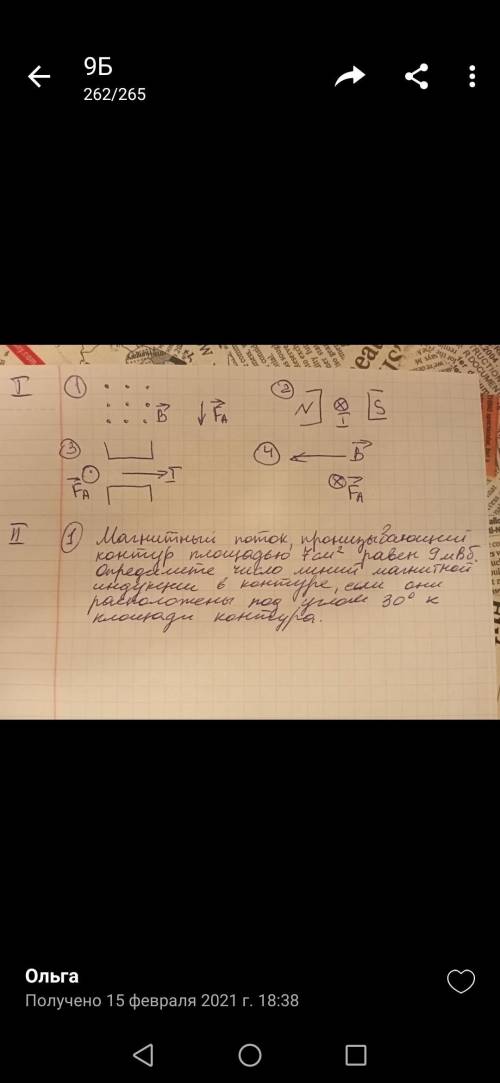 9Б
262/265
I 1 B F_A 2 N I S
3 F_A I 4 B
F_A
II 1 Магнитный поток, пронизывающий
контур площадью 7 см² равен 9 мВб.
Определите число линий магнитной
индукции в контуре, если они
расположены под углом 30° к
площади контура.
Ольга
Получено 15 февраля 2021 г. 18:38